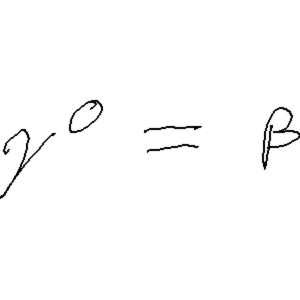 γ⁰ = β